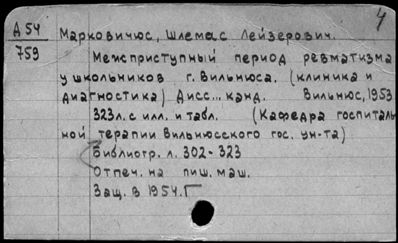 4
А 54
759
Марковичюс, Шлемас Лейзерович.
Межприступный период ревматизма
у школьников г. Вильнюса. (клиника и
диагностика) Дисс... канд. Вильнюс, 1953.
323л. с илл. и табл. (Кафедра госпиталь
ной терапии Вильнюсского гос. ун-та)
Библиогр. л. 302-323
Отпеч. на пиш. маш.
Защ. в 1954.Г